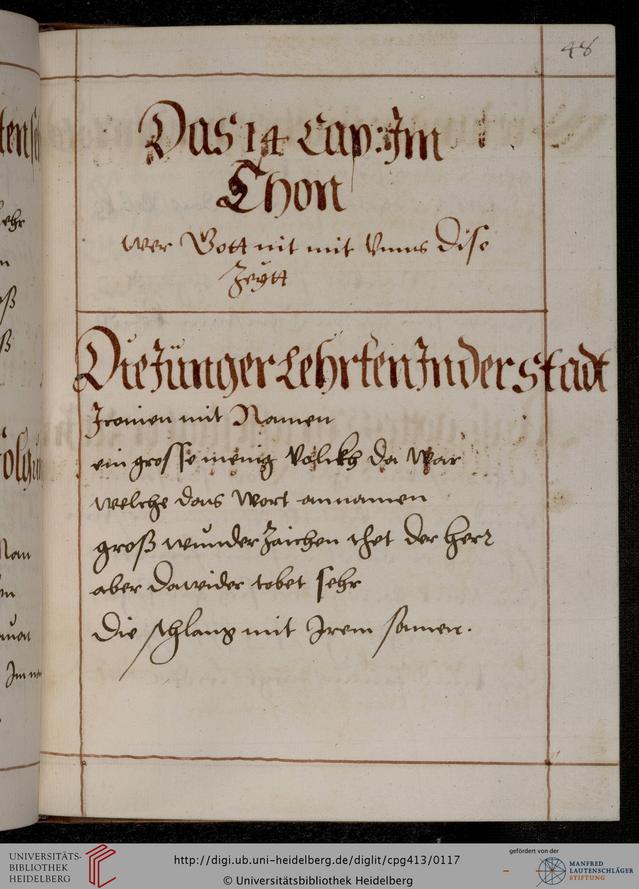 48
Das 14 Cap: Im
Thon
wer Gott nit mit Vnns dise
Zeytt
Die Jünger Lehrten In der Stadt
Iconien mit Namen
ein grosse menig Volckh da war
welche das Wort annamen
groß wunder Zaichen thet der herr
aber dawider tobet sehr
die schlang mit Irem samen.
UNIVERSITÄTS-
BIBLIOTHEK
HEIDELBERG
http://digi.ub.uni-heidelberg.de/diglit/cpg413/0117
© Universitätsbibliothek Heidelberg
gefördert von der
MANFRED
LAUTENSCHLÄGER
STIFTUNG